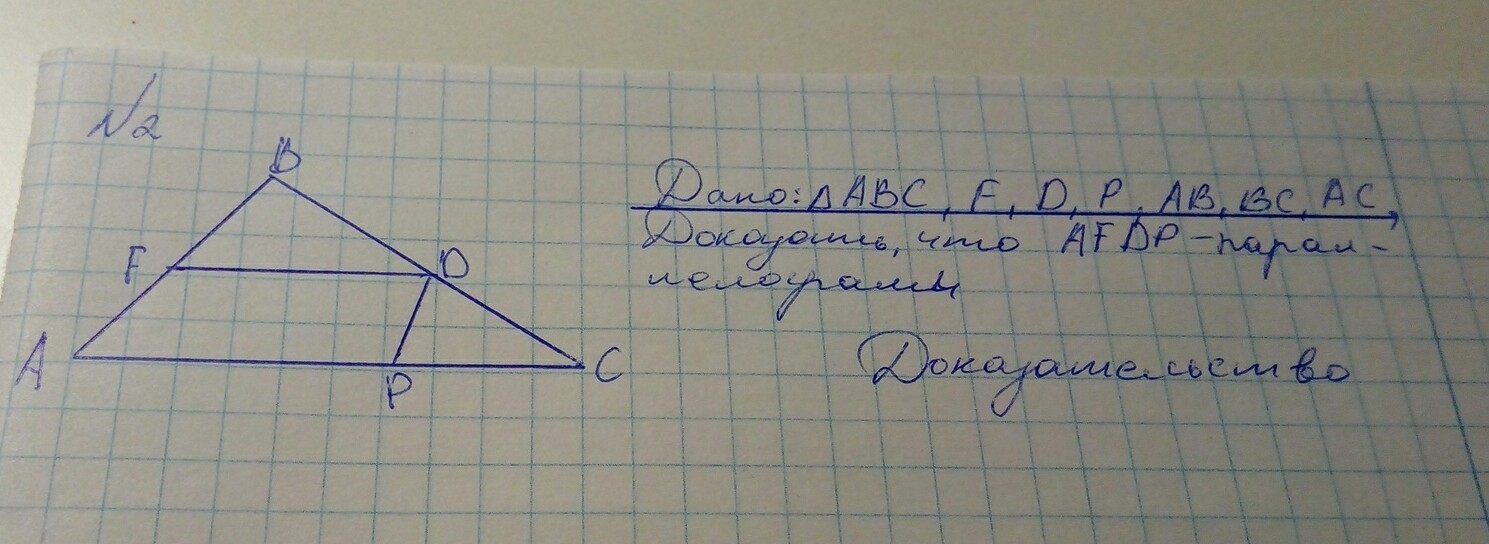 №2
B
Дано: △ABC, F, D, P, AB, BC, AC,
Доказать, что AFDP - парал-
лелограмм
F
D
A
P
C
Доказательство